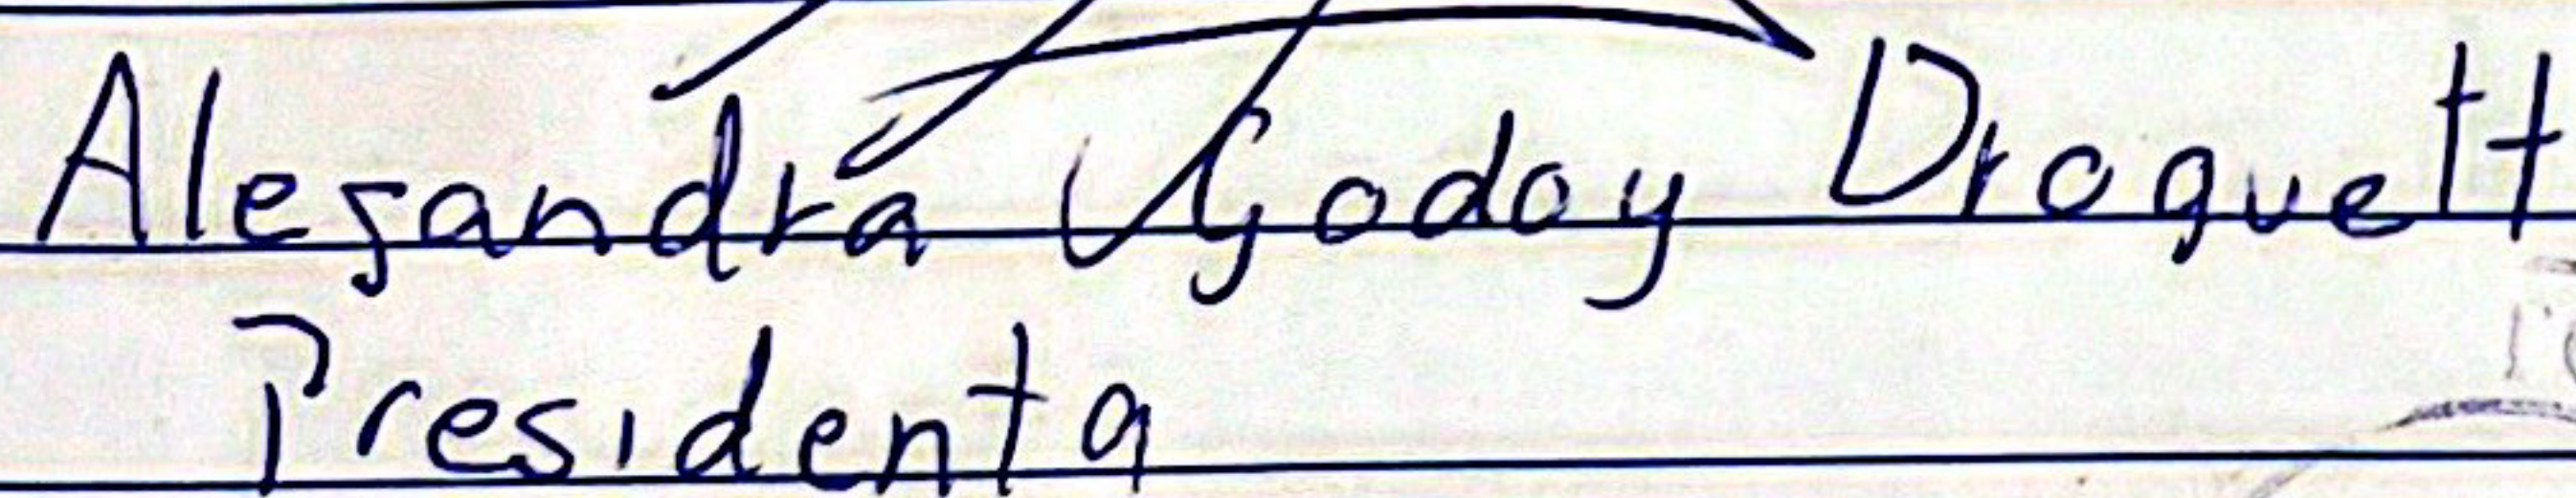 Alejandra Godoy Droguett
Presidenta